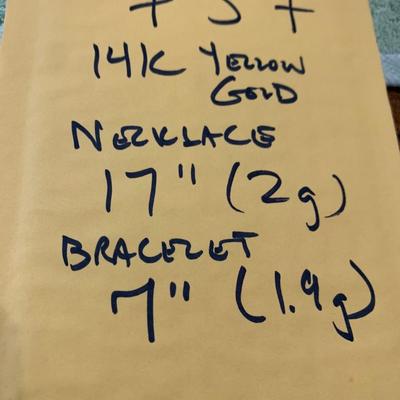 14K YELLOW
GOLD
NECKLACE
17" (2g)
BRACELET
7" (1.9g)